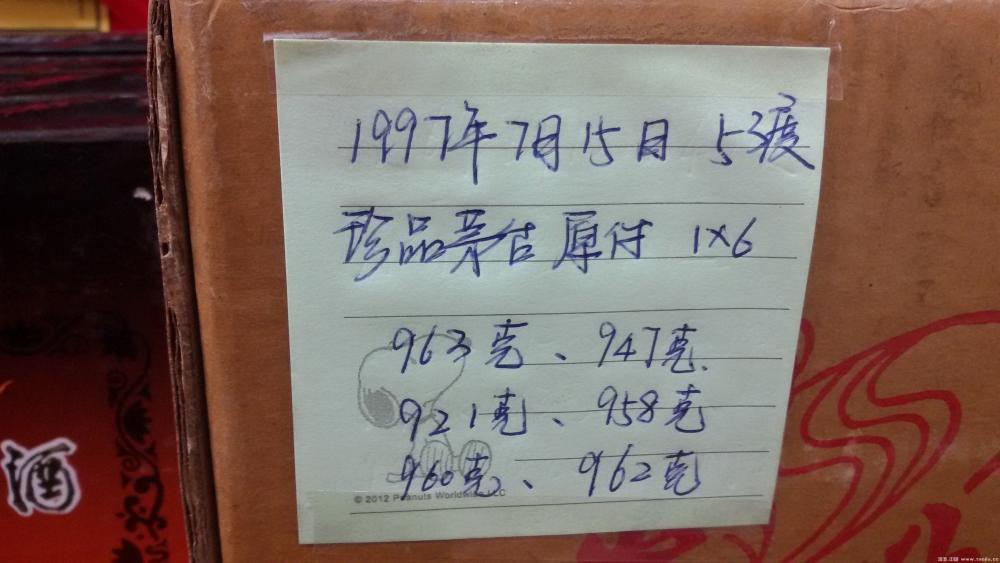 1997年7月15日 53度
珍品茅台原件 1×6
963克、947克.
921克、958克
960克、962克
© 2012 Peanuts Worldwide LLC
酒